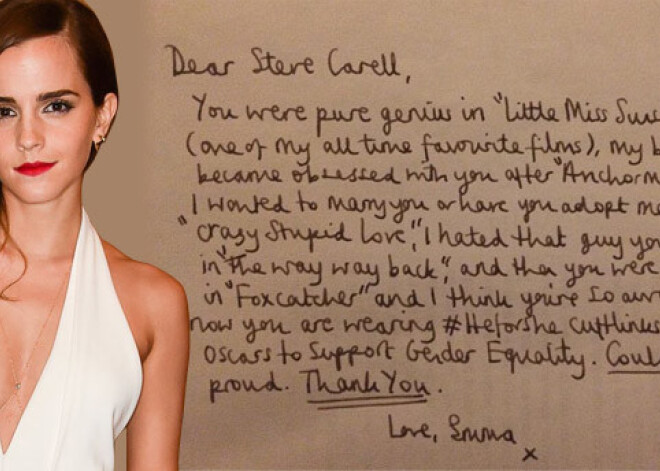 Dear Steve Carell,
You were pure genius in "Little Miss Suns
(one of my all time favourite films), my b
became obsessed with you after "Anchorm
I wanted to marry you or have you adopt me
"crazy stupid love", I hated that guy yo
in "the way way back", and then you were
in "Foxcatcher" and I think you're so aw
now you are wearing #Heforshe cufflinks
Oscars to support Gender Equality. Coul
proud. Thank You.
Love, Emma
x